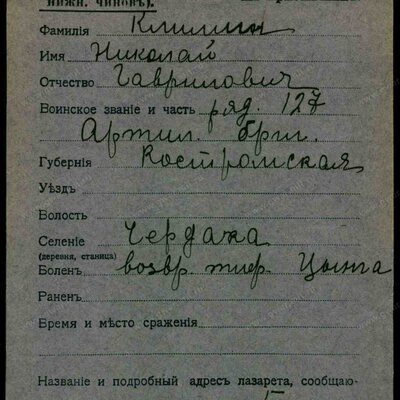 нижн. чиновъ).
Фамилія Климин
Имя Николай
Отчество Гаврилович
Воинское званіе и часть ряд. 127
Артил. бриг.
Губернія Костромская
Уѣздъ
Волость
Селеніе Чердаха
(деревня, станица)
Боленъ возвр. тиф. Цынга
Раненъ
Время и мѣсто сраженія
Названіе и подробный адресъ лазарета, сообщаю-